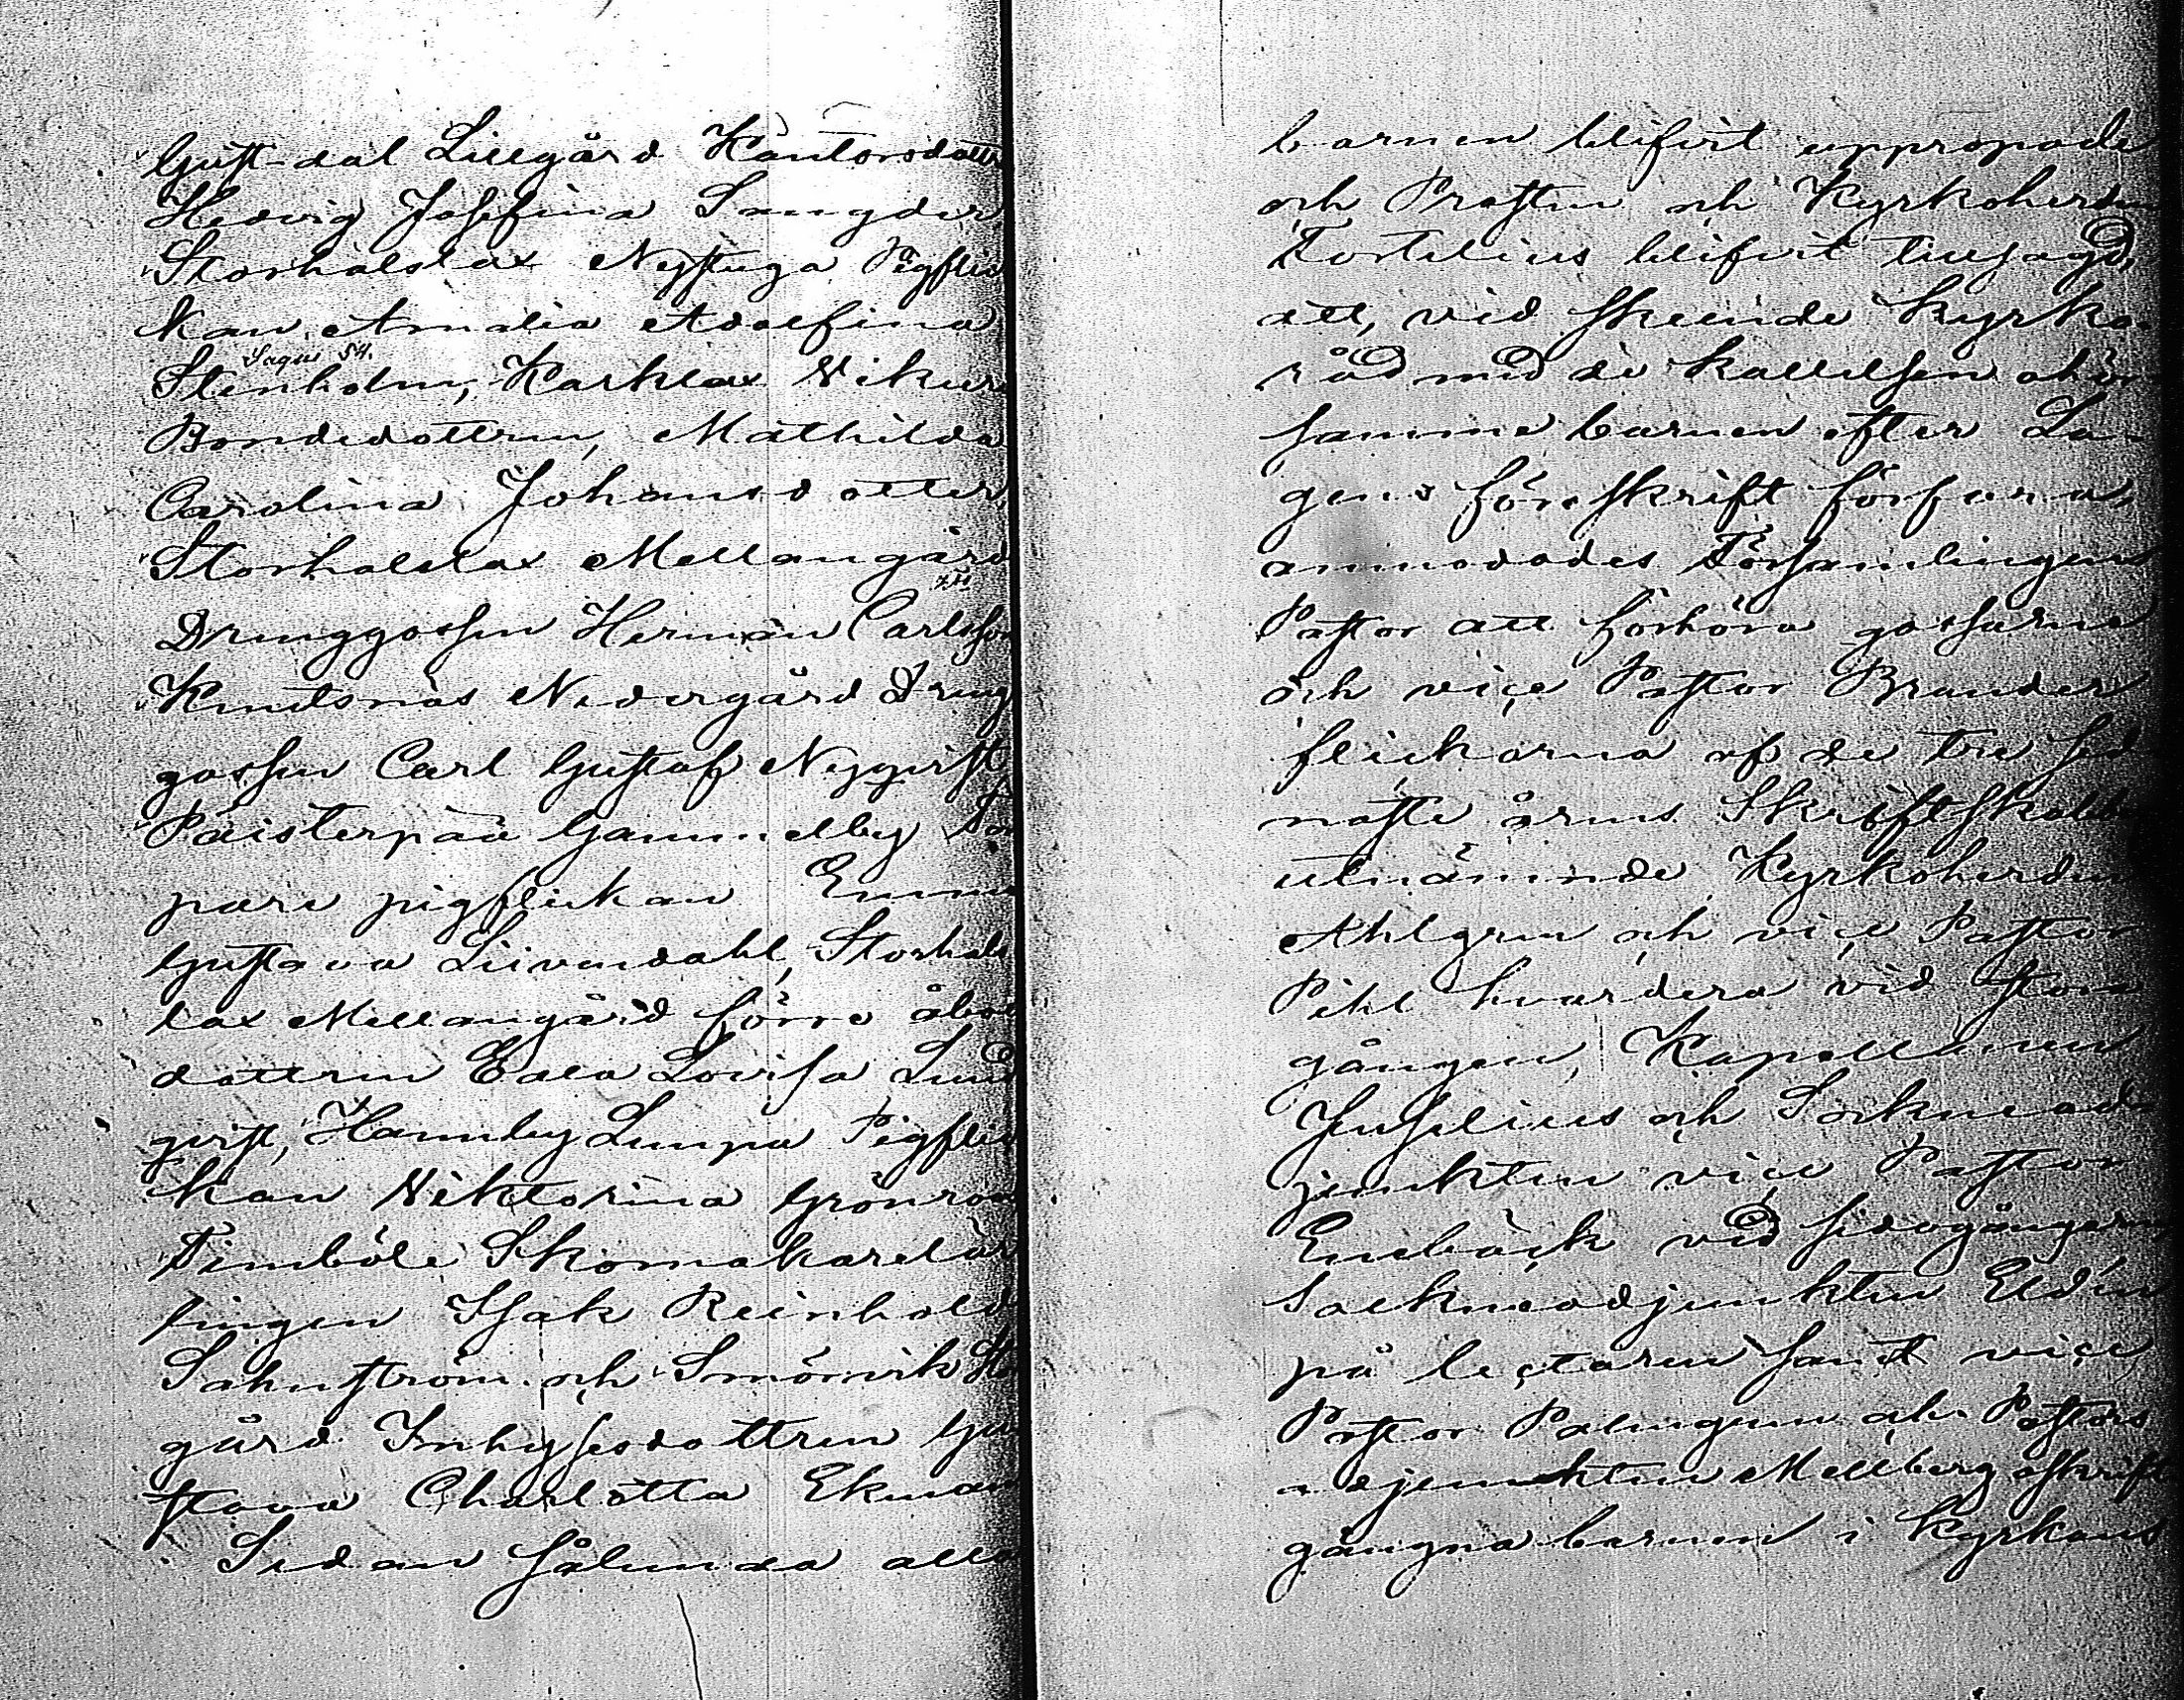 Gust-dal Lillgård Kantorsdottr
Hedvig Josefina Sangder
Storhalslax Nystuga Pigflic
kan Amalia Adolfina
Sagu 54.
Stenholm, Karklax Vikurs
Bondedottren, Mathilda
Carolina Johansdotter
Storhalslax Mellangård
Drenggossen Herman Carlsson
Knutsnäs Nedergård Dreng
gossen Carl Gustaf Nyqvist,
Päisterpää Gammelby Tor
pare pigflickan Emma
Gustava Liivendahl, Storhals
lax Mellangård förre åbo
dottren Edla Lovisa Lund
qvist, Hannby Lumpa Pigflic
kan Viktorina Grönroos
Timböle Skomakarelär
lingen Isak Reinhold
Sahnström och Smörvik Stor
gård Inhysesdottren Gu
stava Charlotta Ekman
Sedan sålunda alla
barnen blifvit uppropade
och Prosten och Kyrkoherden
Tortelius blifvit tillsagd,
att, vid skeende Kyrko-
råd med de kallelsen ohör-
samme barnen efter La-
gens föreskrift förfara,
anmodades Församlingens
Pastor att förhöra gossarne
och vice Pastor Brander
flickorna af de tre sed-
naste årens Skriftskolor
utnämnde Kyrkoherden
Ahlgren och vice Pastor
Pihl hvardera vid stora
gången, Kapellanen
Juselius och Socknead-
junkten vice Pastor
Enebäck vid sidogångarne
Sockneadjunkten Eldin
på lectaren samt vice
Pastor Palmgren och Pastors
adjunkten Mellberg oskrift
gångna barnen i Kyrkans